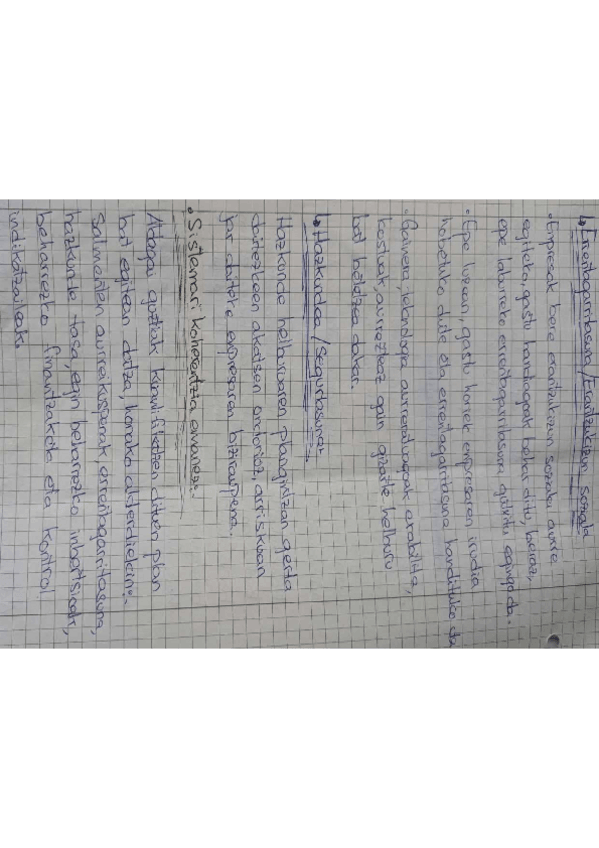 ↳ Errentagarritasuna / Erantzukizun soziala
• Enpresak bere erantzukizun sozialei aurre
egiteko, gastu handiagoak behar ditu, beraz,
epe laburreko errentagarritasuna gutxitu egingo da.
• Epe luzean, gastu horiek enpresaren irudia
hobetuko dute eta errentagarritasuna handituko da
• Gainera, teknologia aurreratuagoak erabiltzea,
kostuak aurrezteaz gain gizarte helburu
bat betetzea dakar.
↳ Hazkundea / Segurtasuna:
Hazkunde helburuaren plangintzan gerta
daitezkeen akatsen ondorioz, arriskuan
jar daiteke enpresaren biziraupena.
• Sistemari koherentzia emanez:
Atagai guztiak kuantifikatzen dituen plan
bat egiten datza, honako alderdiekin:
Salmenten aurreikuspenak, errentagarritasuna,
hazkunde tasa, egin beharrezko inbertsioak,
beharrezko finantzaketa eta kontrol
indikatzaileak.